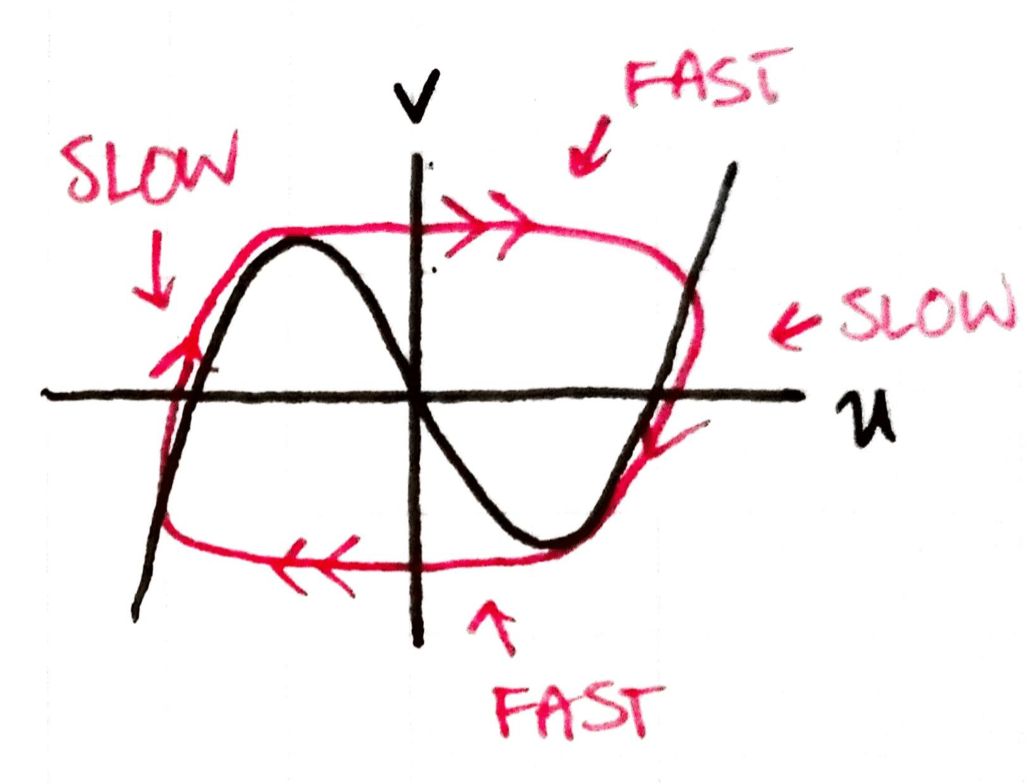 V
FAST
SLOW
SLOW
u
FAST